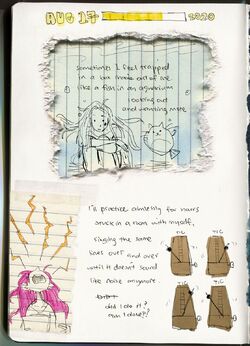 AUG 17
2020
sometimes I feel trapped
in a box made out of me
like a fish in an aquarium
looking out
and wanting more
I'll practice aimlessly for hours
stuck in a room with myself,
singing the same
bars over and over
until it doesn't sound
like noise anymore
did I do it?
am I done?
TIC
TIC
TIC
TIC